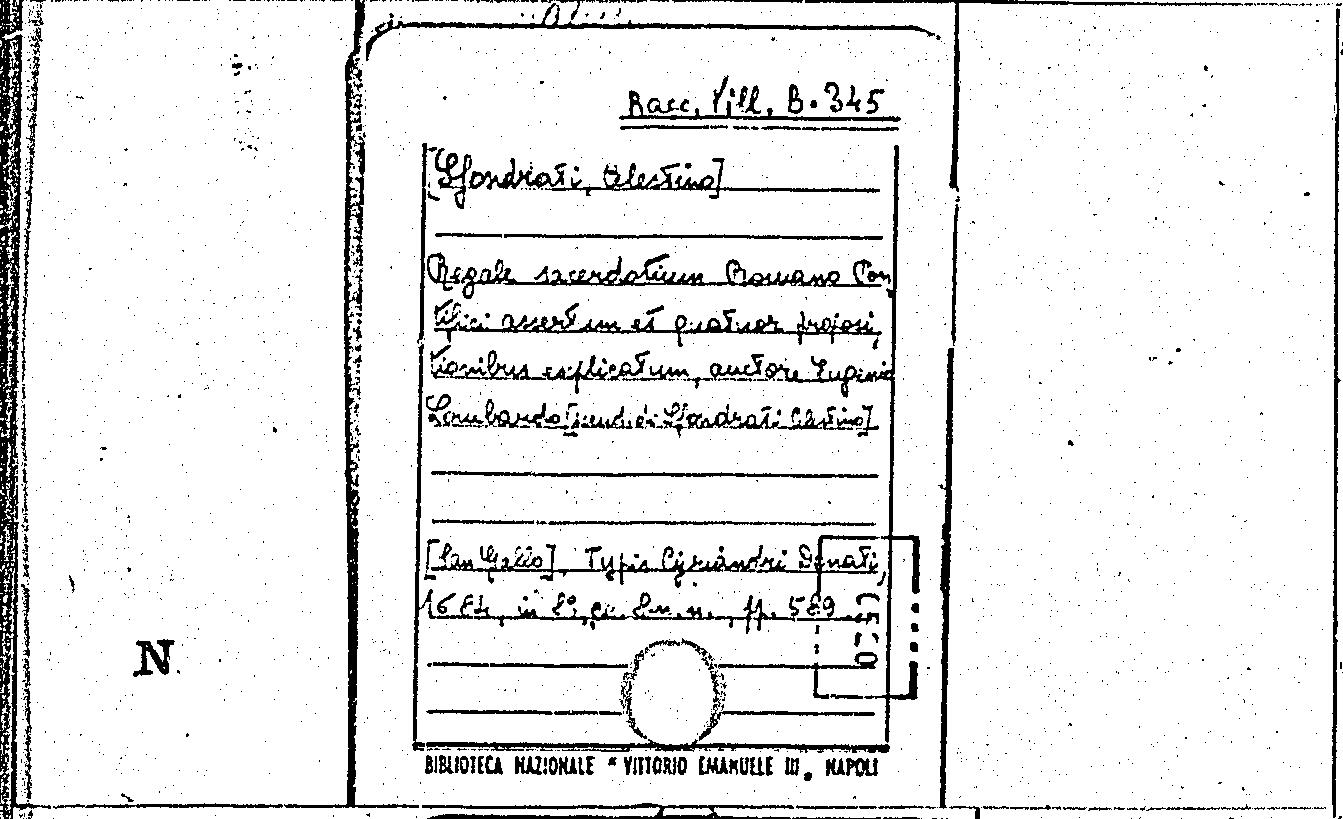 Racc. Vill. B. 345
[Sfondrati, Celestino]
Regale sacerdotium Romano Pon,
tifici assertum et quatuor proposi,
tionibus explicatum, auctore Eugenio
Lombardo [pseud. di Sfondrati Celestino]
[San Gallo], Typis Cyriandri Donati,
1684, in 8°, cc. 8 n. n., pp. 589
N
BIBLIOTECA NAZIONALE "VITTORIO EMANUELE III„ NAPOLI